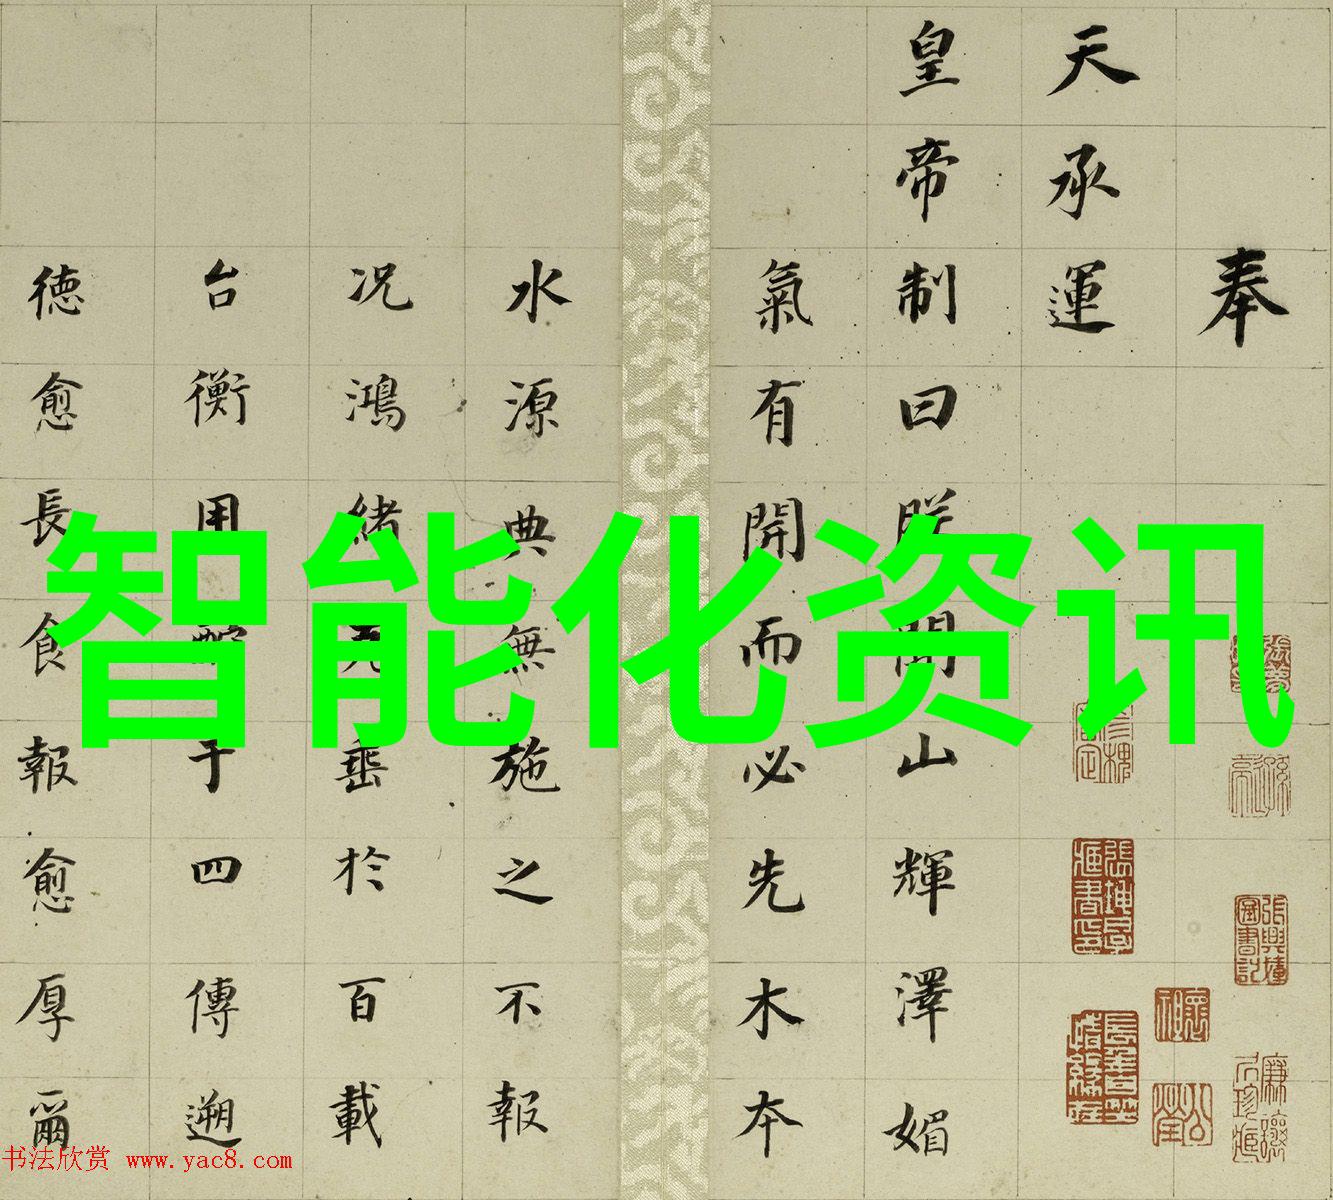 奉
天承運
皇帝制曰朕聞山輝澤媚
氣有開而必先木本
水源典無施之不報
况鴻緒光垂於百載
台衡用于四傳遡
德愈長食報愈厚爾
智能化资讯
书法欣赏 www.yac8.com